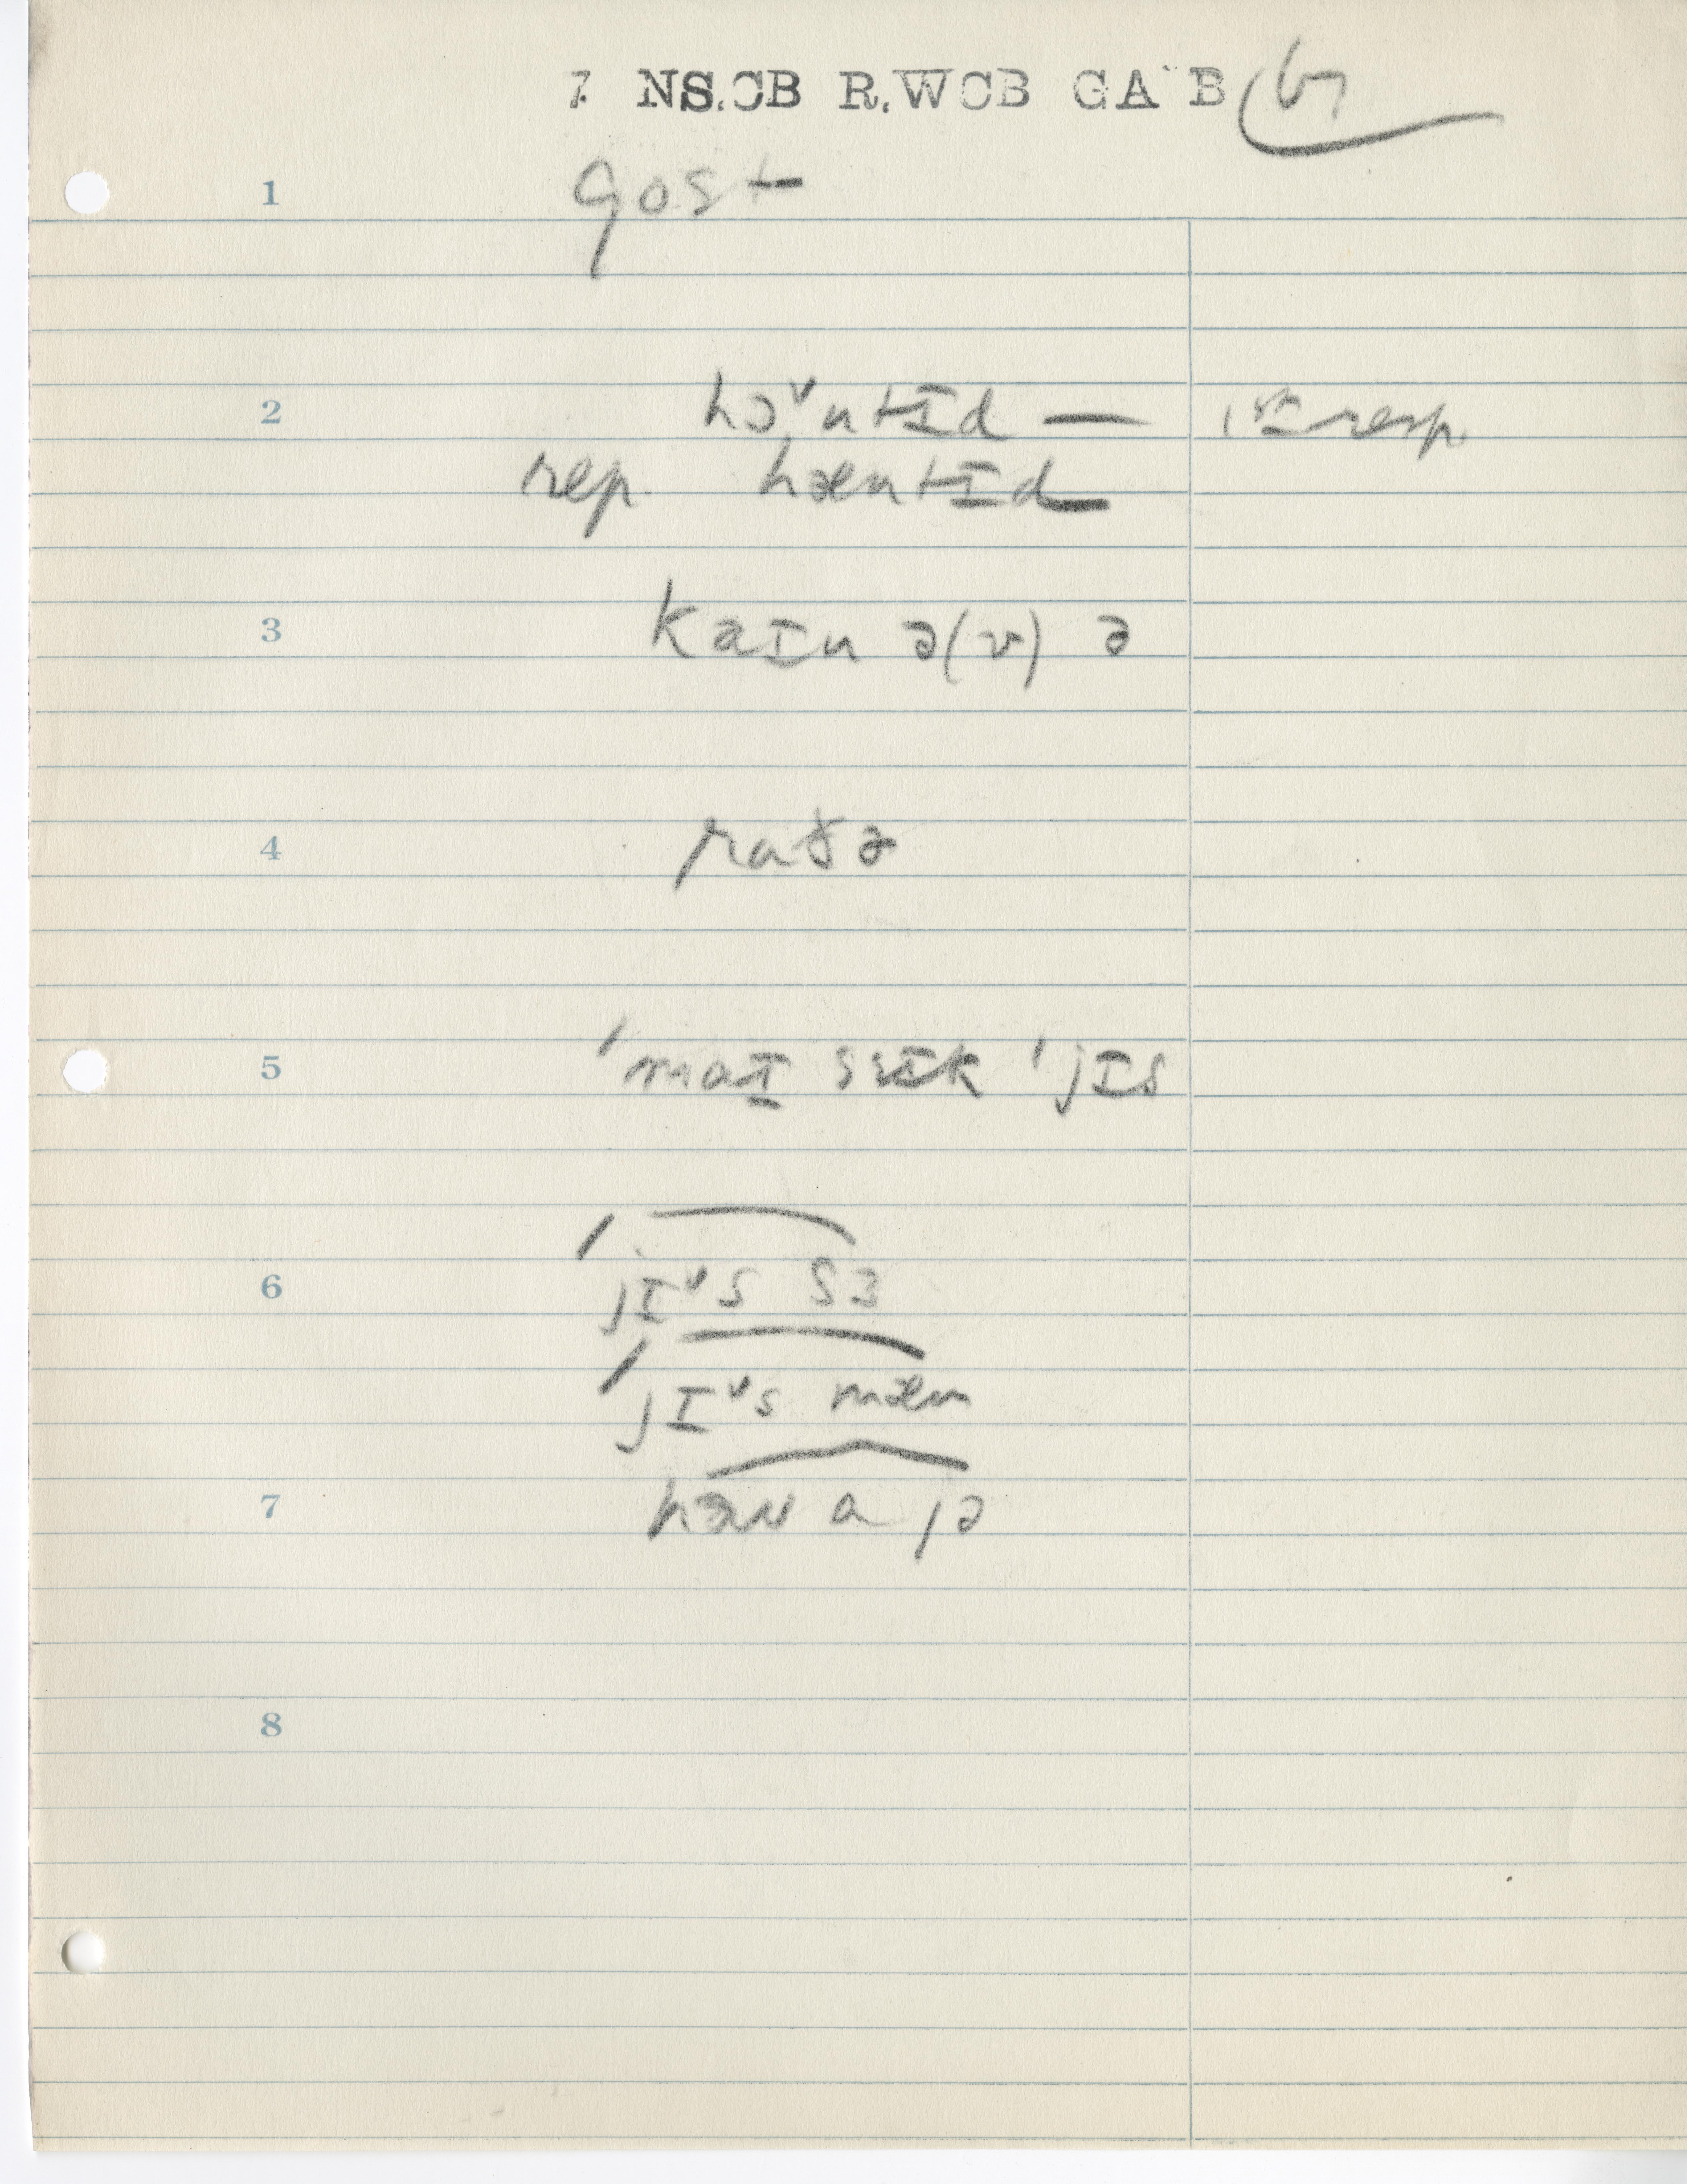 7 NS.CB R.WCB GA B 67
1 gost
2 hɔ˅ntɪd — 1st resp.
rep. hæntɪd
3 kaɪn ə(v) ə
4 raðə
5 'maɪ sɪk 'jɪs
6 'jɪ˅s sɜ
'jɪ˅s mæm
7 ə jə
8